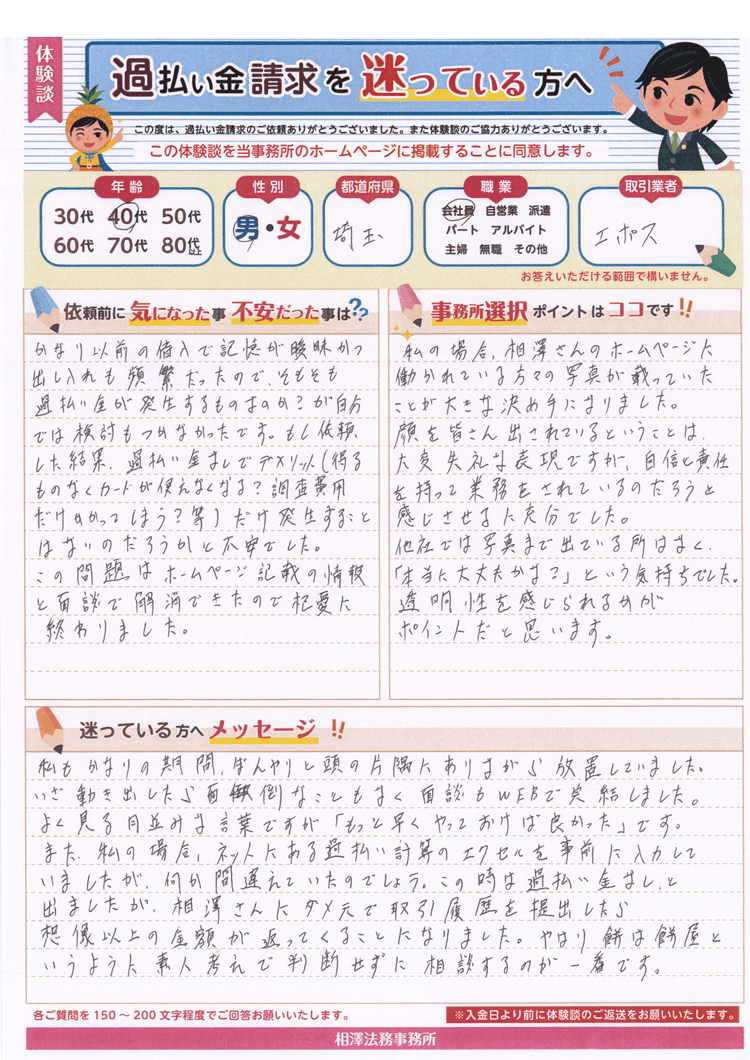 体験談
過払い金請求を迷っている方へ
この度は、過払い金請求のご依頼ありがとうございました。また体験談のご協力ありがとうございます。
この体験談を当事務所のホームページに掲載することに同意します。
年齢
30代 40代 50代
60代 70代 80代以上
性別
男・女
都道府県
埼玉
職業
会社員 自営業 派遣
パート アルバイト
主婦 無職 その他
取引業者
エポス
お答えいただける範囲で構いません。
依頼前に気になった事 不安だった事は??
かなり以前の借入で記憶が曖昧かつ
出し入れも頻繁だったので、そもそも
過払い金が発生するものなのか?が自分
では検討もつかなかったです。もし依頼
した結果、過払い金なしでデメリット(得る
ものなくカードが使えなくなる?調査費用
だけかかってしまう?等)だけ発生すること
はないのだろうかと不安でした。
この問題はホームページ記載の情報
と面談で解消できたので杞憂に
終わりました。
事務所選択ポイントはココです!!
私の場合、相澤さんのホームページに
働かれている方々の写真が載っていた
ことが大きな決め手になりました。
顔を皆さん出されているということは、
大変失礼な表現ですが、自信と責任
を持って業務をされているのだろうと
感じさせるに充分でした。
他社では写真まで出ている所はなく、
「本当に大丈夫かな?」という気持ちでした。
透明性を感じられるかが
ポイントだと思います。
迷っている方へメッセージ!!
私もかなりの期間、ぼんやりと頭の片隅にありながら放置していました。
いざ動き出したら面倒なこともなく面談もWEBで完結しました。
よく見る月並みな言葉ですが「もっと早くやっておけば良かった」です。
また、私の場合、ネットにある過払い計算のエクセルを事前に入力して
いましたが、何か間違えていたのでしょう。この時は過払い金なし、と
出ましたが、相澤さんにダメ元で取引履歴を提出したら
想像以上の金額が返ってくることになりました。やはり餅は餅屋と
いうように素人考えで判断せずに相談するのが一番です。
各ご質問を150〜200文字程度でご回答お願いいたします。
※入金日より前に体験談のご返送をお願いいたします。
相澤法務事務所